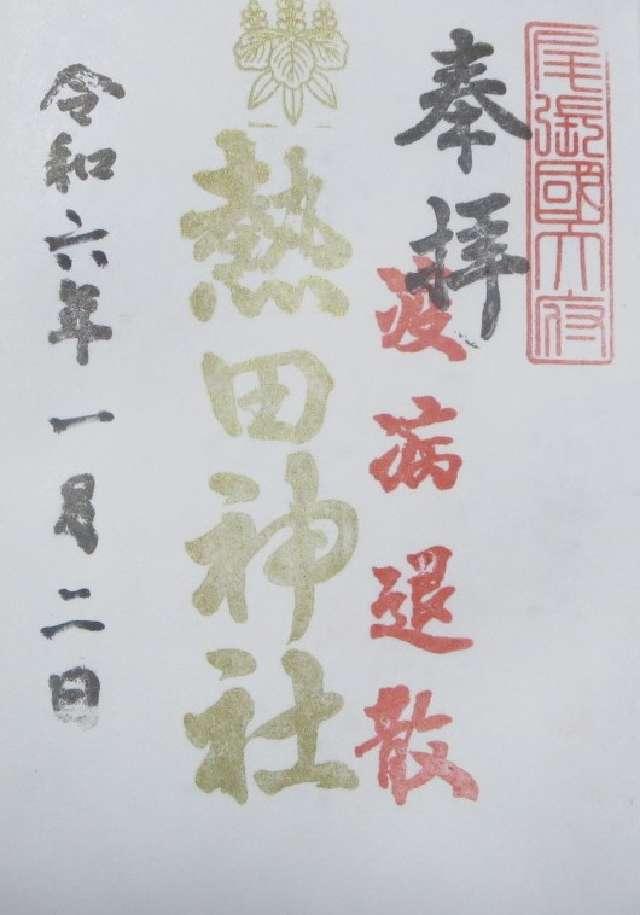 尾張國六府
奉拝
疫病退散
熱田神社
令和六年一月二日